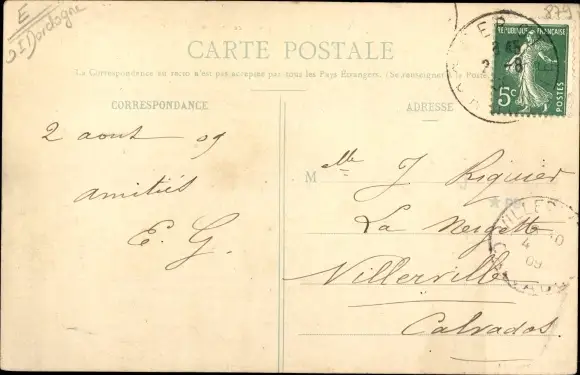 E
Dordogne
879
CARTE POSTALE
La Correspondance au recto n'est pas acceptée par tous les Pays Étrangers. (Se renseigner à la Poste
CORRESPONDANCE
ADRESSE
REPUBLIQUE FRANÇAISE
5c
POSTES
2 aout 09
amitiés
E. G.
Mlle J Riquier
La
Villerville
Calvados.
4
09